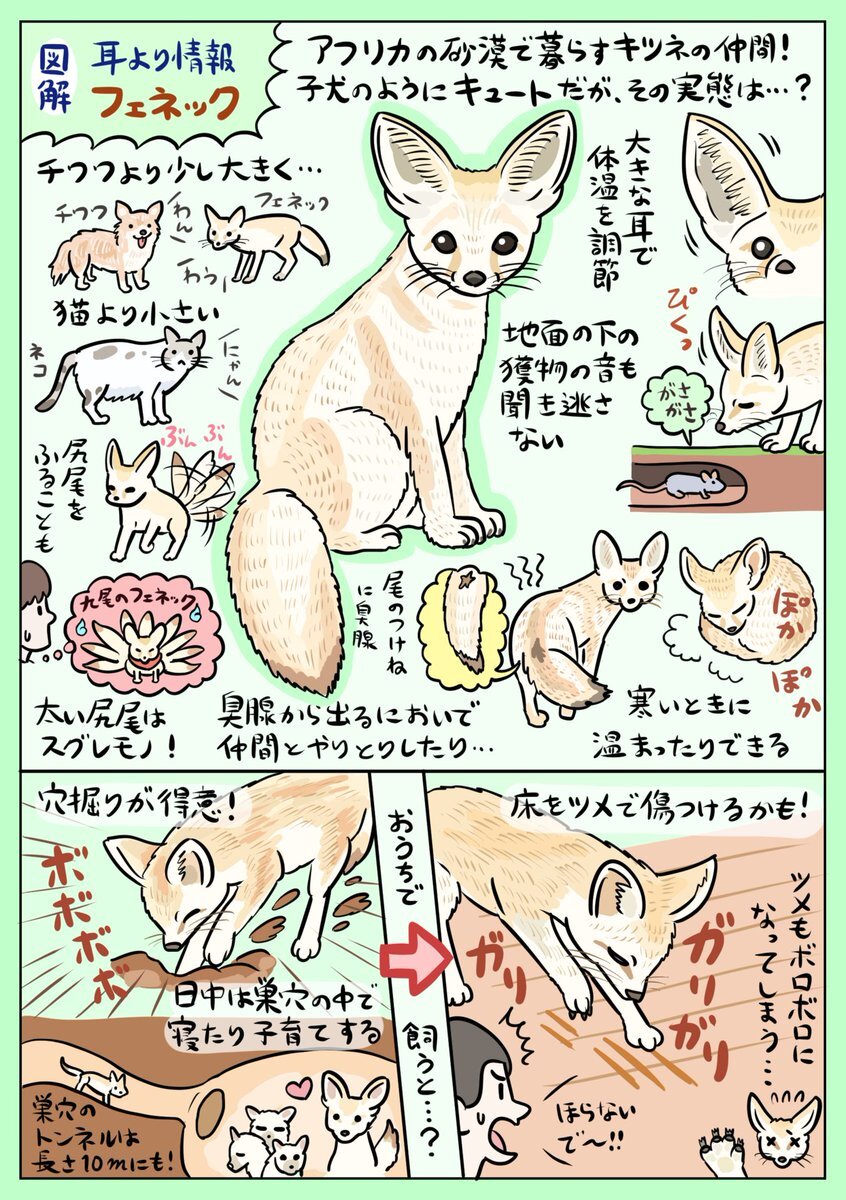 図解
耳より情報
フェネック
アフリカの砂漠で暮らすキツネの仲間!
子犬のようにキュートだが、その実態は…?
チワワより少し大きく…
チワワ
わん
フェネック
わうー
猫より小さい
ネコ
にゃん
大きな耳で
体温を調節
地面の下の
獲物の音も
聞き逃さ
ない
ぴくっ
がさ
がさ
尻尾を
ふることも
ぶんぶん
九尾のフェネック
太い尻尾は
スグレモノ!
尾のつけね
に臭腺
臭腺から出るにおいで
仲間とやりとりしたり…
ぽか
ぽか
寒いときに
温まったりできる
穴掘りが得意!
ボボボボ
日中は巣穴の中で
寝たり子育てする
巣穴の
トンネルは
長さ10mにも!
おうちで
飼うと…?
床をツメで傷つけるかも!
ガリ
ガリガリ
ツメもボロボロに
なってしまう…
ほらない
で〜!!